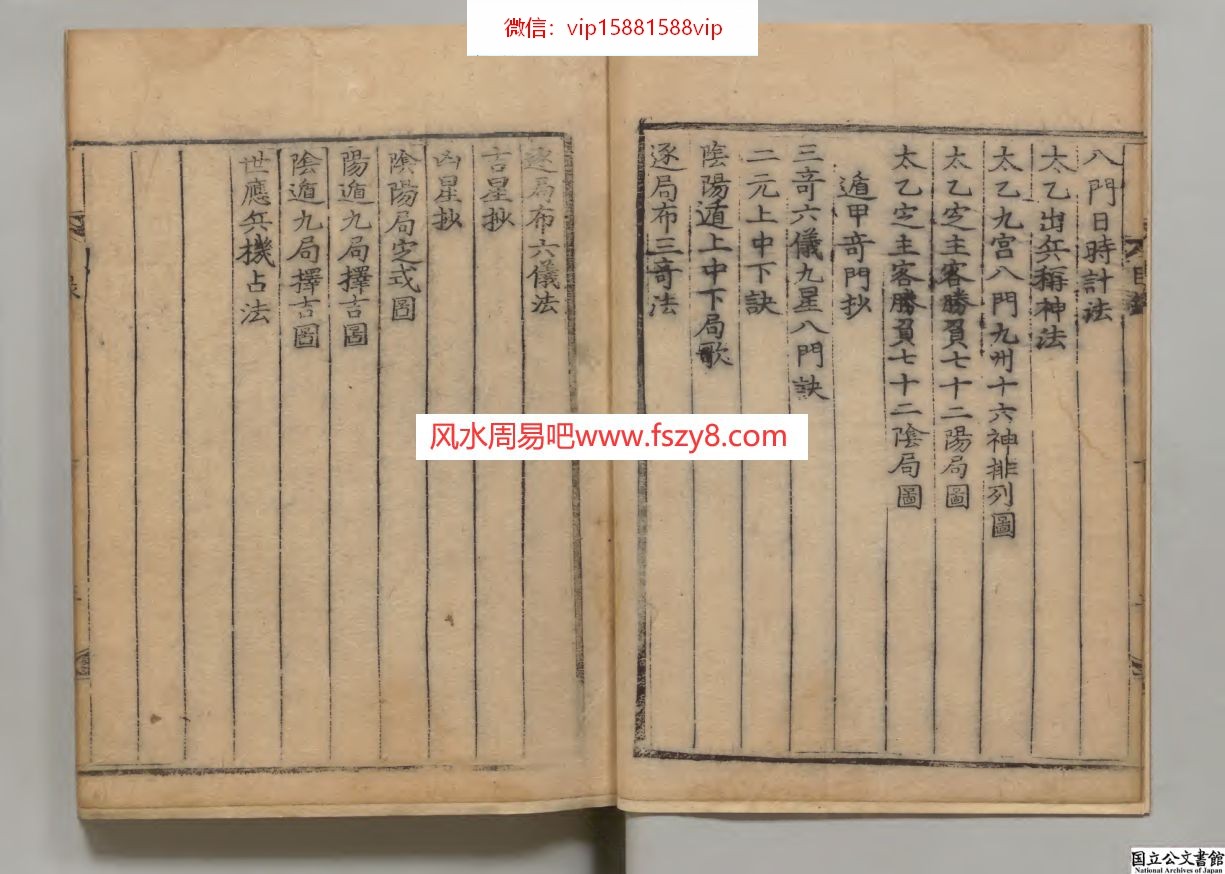 微信：vip15881588vip
八門日時計法
太乙出兵稱神法
太乙九宮八門九州十六神排列圖
太乙定主客勝負七十二陽局圖
太乙定主客勝負七十二陰局圖
遁甲奇門抄
三奇六儀九星八門訣
二元上中下訣
陰陽遁上中下局歌
逐局布三奇法
逐局布六儀法
吉星抄
凶星抄
陰陽局定式圖
陽遁九局擇吉圖
陰遁九局擇吉圖
世應兵機占法
风水周易吧www.fszy8.com
国立公文書館
National Archives of Japan